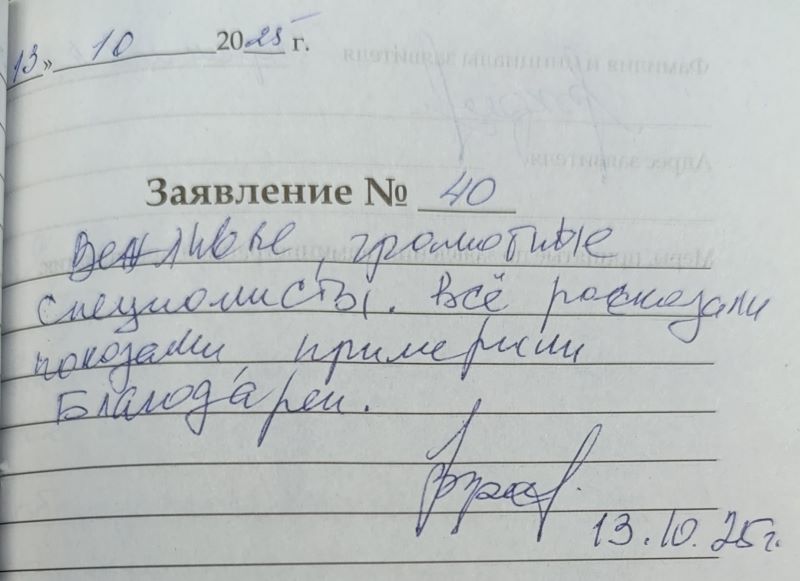 13» 10 2025 г.
Заявление № 40
Вежливые, грамотные
специалисты. Всё рассказали
показали, примерили
Благодарен.
13.10.25г.